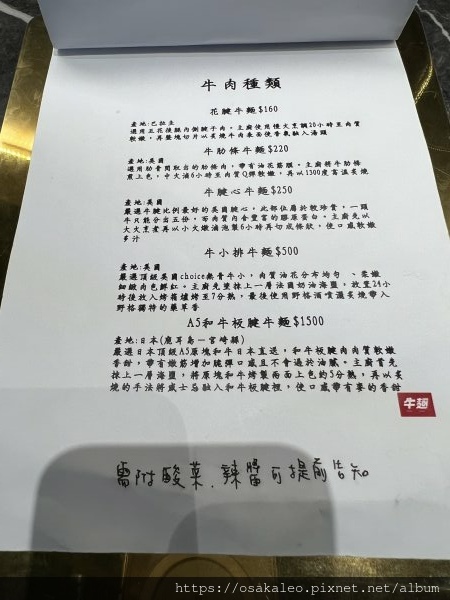 牛肉種類
花腱牛麵$160
產地:巴拉圭
選用五花後腿內側腱子肉。主廚使用慢火烹調20小時至肉質
軟嫩,再整塊切片以炙燒牛肉表面使香氣融入湯頭
牛肋條牛麵$220
產地:美國
選用肋骨間取出的肋條肉,帶有油花筋膜。主廚將牛肋條
煎上色,中火滷6小時至肉質Q彈軟嫩,再以1300度高溫炙燒
牛腱心牛麵$250
產地:美國
嚴選牛腱比例最好的美國腱心。此部位屬於較珍貴,一頭
牛只能分出五份,而肉質內含豐富的膠原蛋白。主廚先以
大火烹煮再以小火燉滷泡製6小時再切成條狀,使口感軟嫩
多汁
牛小排牛麵$500
產地:美國
嚴選頂級美國choice無骨牛小,肉質油花分布均勻、柔嫩
細緻肉色鮮紅。主廚先塗抹上一層法國奶油海鹽,放置24小
時後放入烤箱爐烤至7分熟,最後使用野格酒噴灑炙燒帶入
野格獨特的藥草香
A5和牛板腱牛麵$1500
產地:日本(鹿耳島–宮崎縣)
嚴選日本頂級A5原塊和牛日本直送,和牛板腱肉肉質軟嫩
香甜,帶有嫩筋增加脆彈口感且不會過於油膩。主廚首先
抹上一層海鹽,將原塊和牛烤製兩面上色約5分熟,再以炙
燒的手法將威士忌融入和牛板腱裡,使口感帶有麥的香甜
牛麵
需附酸菜、辣醬可提前告知
https://osakaleo.pixnet.net/album